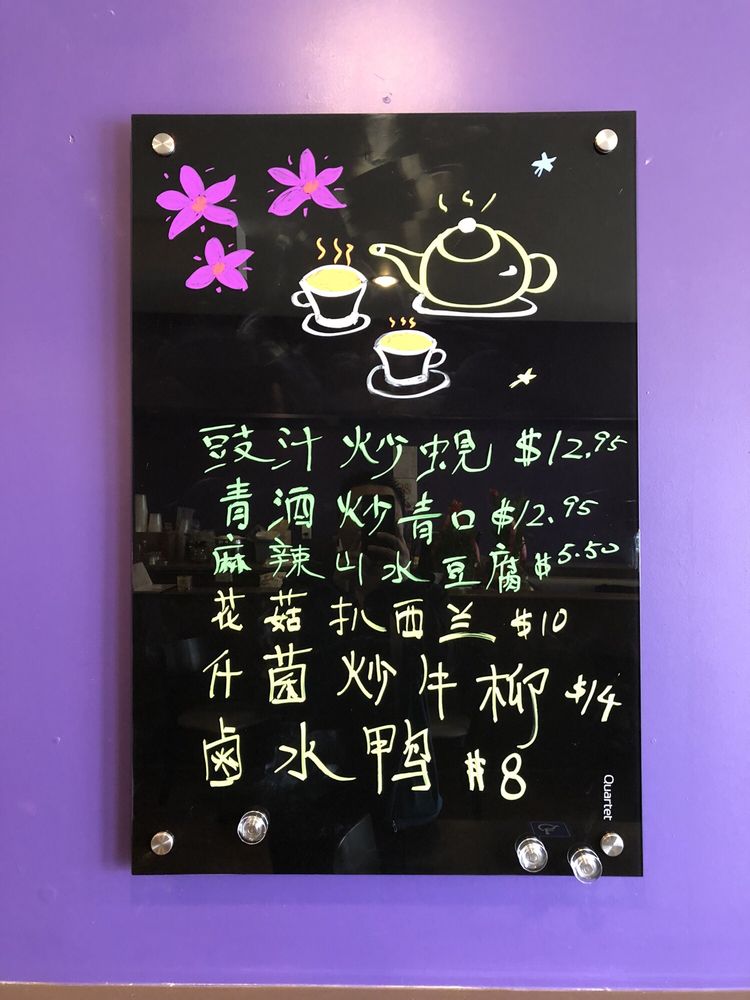 豉汁炒蜆 $12.95
青酒炒青口 $12.95
麻辣山水豆腐 $5.50
花菇扒西兰 $10
什菌炒牛柳 $14
鹵水鸭 $8
Quartet